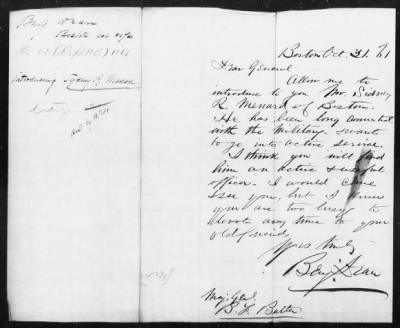 Benj Dean
Boston Oct 31/61
Introducing Sydney R. Menard
Boston Oct. 31. 61
Dear General
Allow me to
introduce to you Mr. Sidney
R. Menard of Boston.
He has been long connected
with the Military - wants
to go into active service.
I think you will find
him an active & useful
officer. I would come
& see you, but I know
you are too busy to
devote any time to your
old friends
Yours truly
Benj. Dean
Maj. Genl.
B. F. Butler